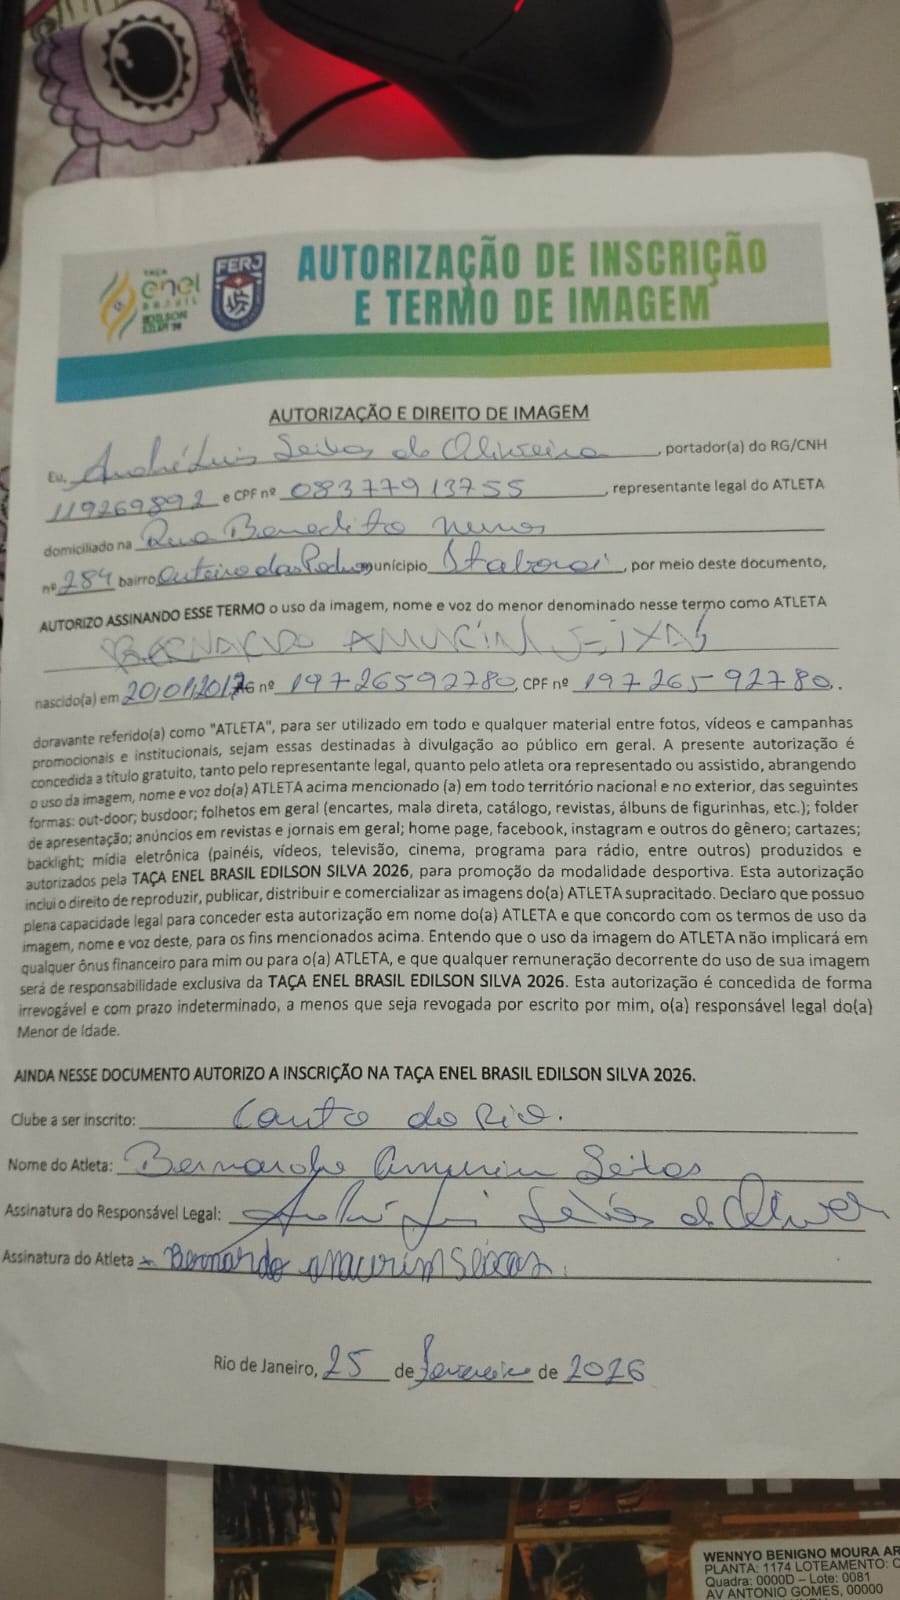 TAÇA
enel
BRASIL
EDILSON
SILVA
FERJ
AUTORIZAÇÃO DE INSCRIÇÃO
E TERMO DE IMAGEM
AUTORIZAÇÃO E DIREITO DE IMAGEM
Eu, André Luis Seixas de Oliveira, portador(a) do RG/CNH
119269892 e CPF nº 08377913755, representante legal do ATLETA
domiciliado na Rua Benedito Nunes
nº 284 bairro Outeiro das Pedras município Itaboraí, por meio deste documento,
AUTORIZO ASSINANDO ESSE TERMO o uso da imagem, nome e voz do menor denominado nesse termo como ATLETA
BERNARDO AMURIM SEIXAS
nascido(a) em 20/01/2017 RG nº 19726592780, CPF nº 19726592780.
doravante referido(a) como "ATLETA", para ser utilizado em todo e qualquer material entre fotos, vídeos e campanhas
promocionais e institucionais, sejam essas destinadas à divulgação ao público em geral. A presente autorização é
concedida a título gratuito, tanto pelo representante legal, quanto pelo atleta ora representado ou assistido, abrangendo
o uso da imagem, nome e voz do(a) ATLETA acima mencionado (a) em todo território nacional e no exterior, das seguintes
formas: out-door; busdoor; folhetos em geral (encartes, mala direta, catálogo, revistas, álbuns de figurinhas, etc.); folder
de apresentação; anúncios em revistas e jornais em geral; home page, facebook, instagram e outros do gênero; cartazes;
backlight; mídia eletrônica (painéis, vídeos, televisão, cinema, programa para rádio, entre outros) produzidos e
autorizados pela TAÇA ENEL BRASIL EDILSON SILVA 2026, para promoção da modalidade desportiva. Esta autorização
inclui o direito de reproduzir, publicar, distribuir e comercializar as imagens do(a) ATLETA supracitado. Declaro que possuo
plena capacidade legal para conceder esta autorização em nome do(a) ATLETA e que concordo com os termos de uso da
imagem, nome e voz deste, para os fins mencionados acima. Entendo que o uso da imagem do ATLETA não implicará em
qualquer ônus financeiro para mim ou para o(a) ATLETA, e que qualquer remuneração decorrente do uso de sua imagem
será de responsabilidade exclusiva da TAÇA ENEL BRASIL EDILSON SILVA 2026. Esta autorização é concedida de forma
irrevogável e com prazo indeterminado, a menos que seja revogada por escrito por mim, o(a) responsável legal do(a)
Menor de Idade.
AINDA NESSE DOCUMENTO AUTORIZO A INSCRIÇÃO NA TAÇA ENEL BRASIL EDILSON SILVA 2026.
Clube a ser inscrito: Canto do Rio.
Nome do Atleta: Bernardo Amurim Seixas
Assinatura do Responsável Legal: André Luis Seixas de Oliveir
Assinatura do Atleta Bernardo amaurim seixas.
Rio de Janeiro, 25 de Fevereiro de 2026
WENNYO BENIGNO MOURA AR
PLANTA: 1174 LOTEAMENTO: C
Quadra: 0000D – Lote: 0081
AV ANTONIO GOMES, 00000